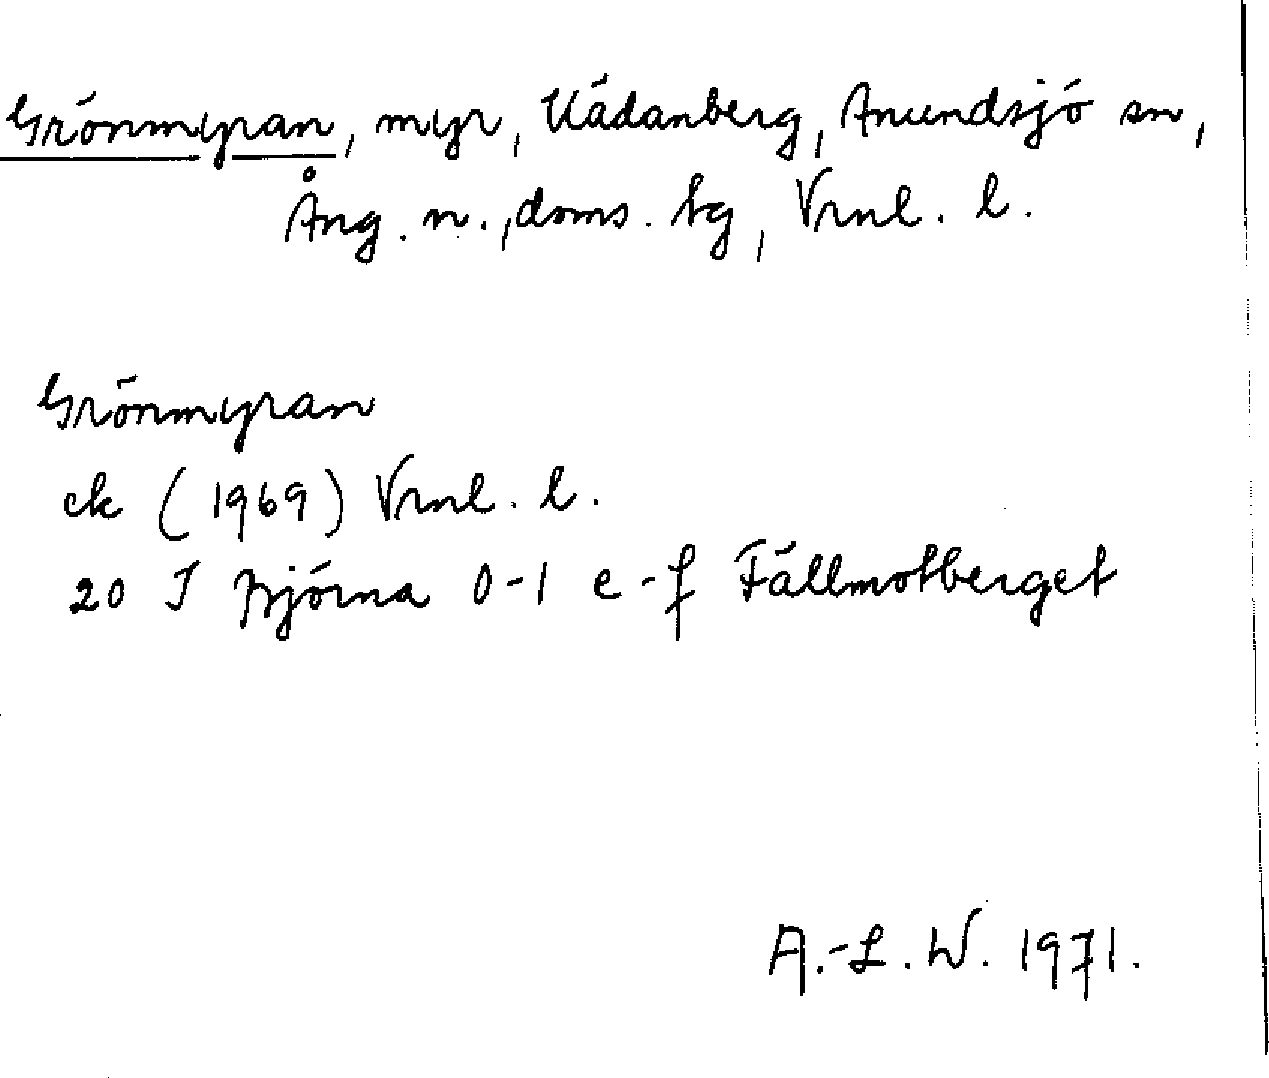 Grönmyran, myr, Kädanberg, Anundsjö sn,
Ång. n., doms. tg, Vrnl. l.
Grönmyran
ek (1969) Vrnl. l.
20 I Björna 0-1 e-f Fällmotberget
A.-L. W. 1971.